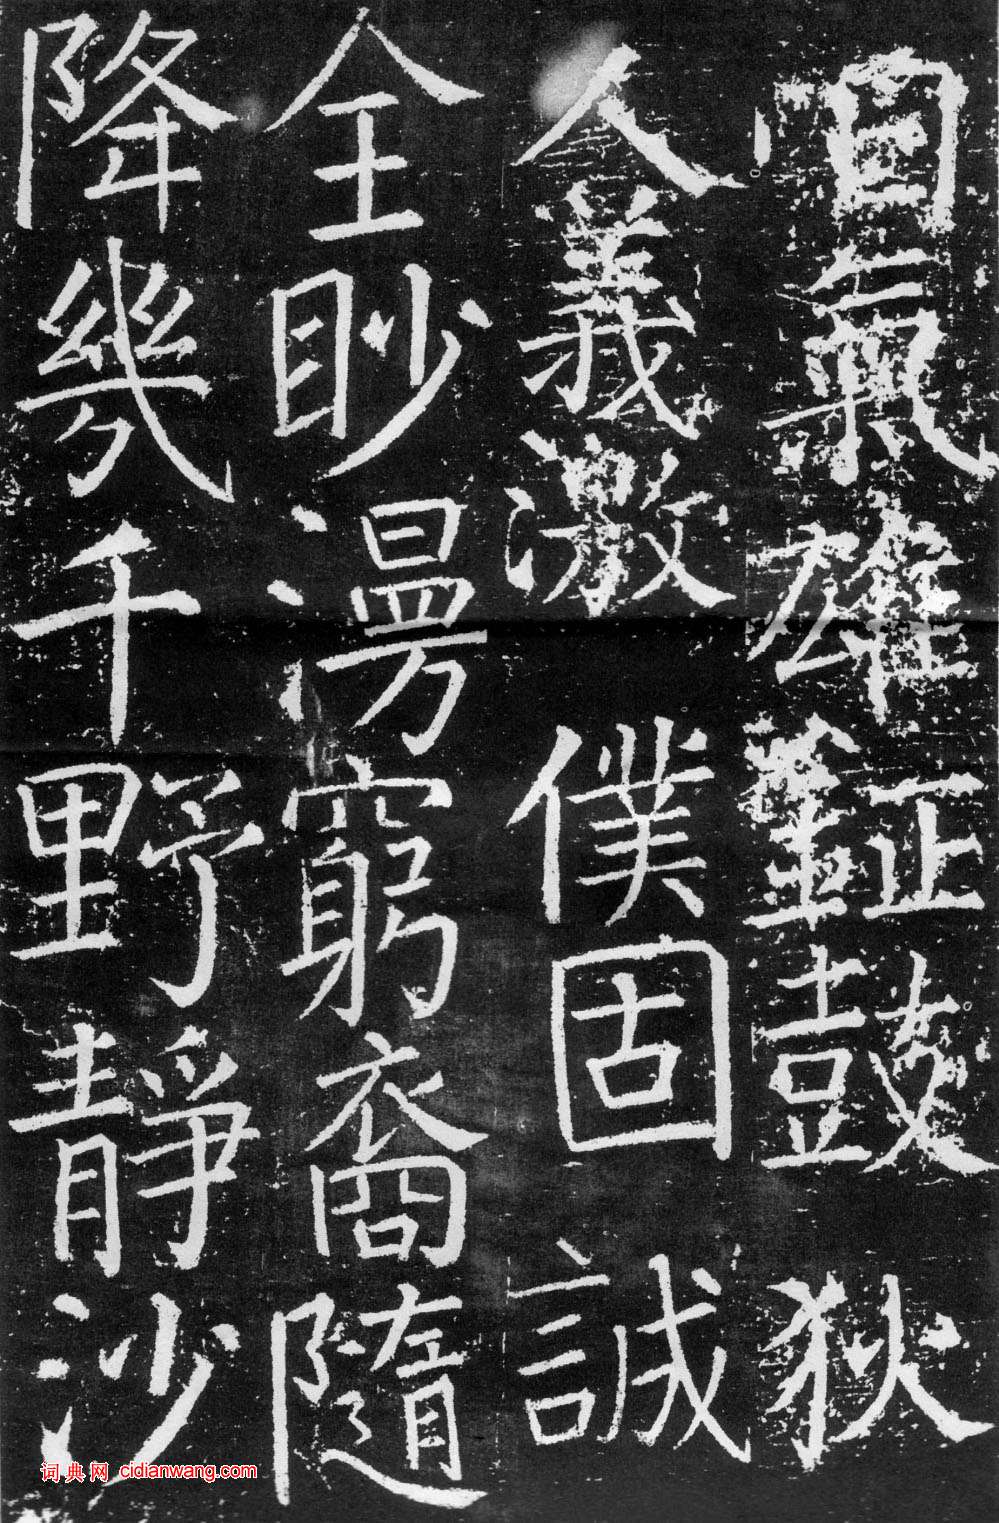 氣雄鉦鼓狄
人義激僕固誠
全眇漫窮裔隨
降幾千野靜沙
词典网 cidianwang.com